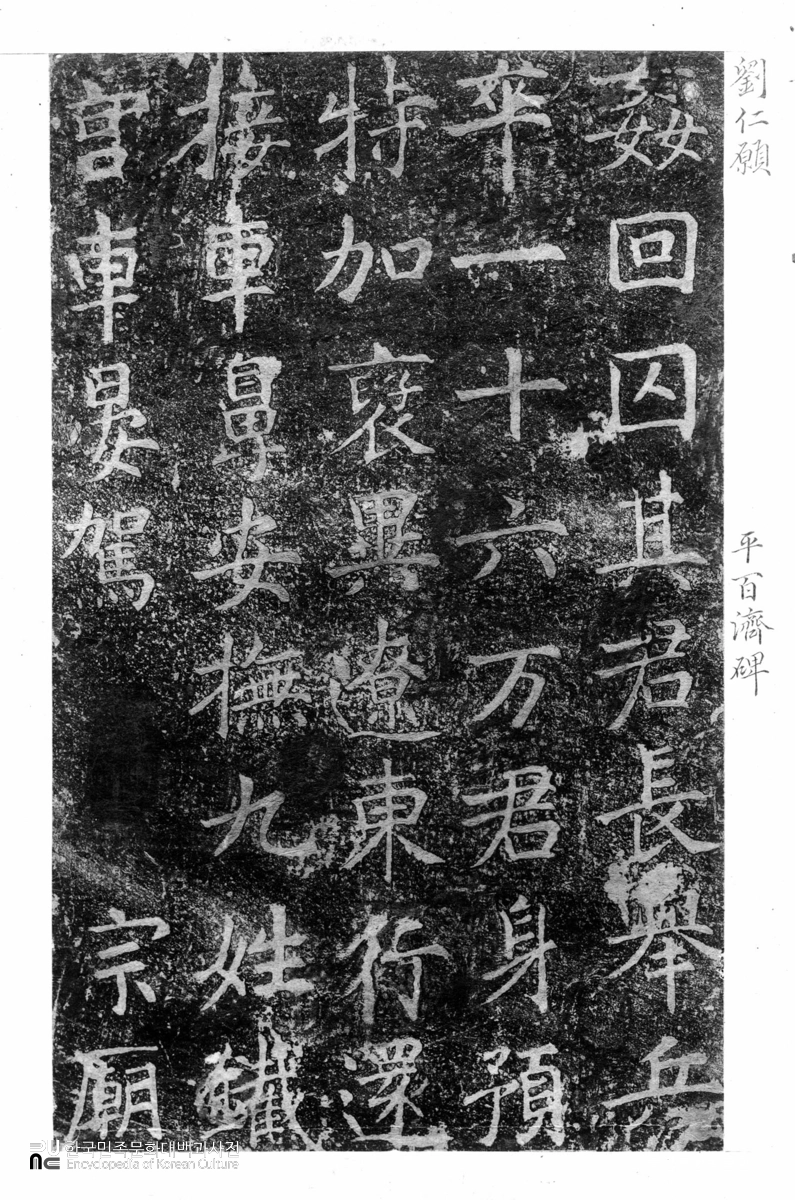 劉仁願 平百濟碑
姦回囚其君長舉兵
卒一十六万君身預
特加褒異遼東行還
接車鼻安撫九姓鐵
宮車晏駕 宗廟
한국민족문화대백과사전
Encyclopedia of Korean Culture